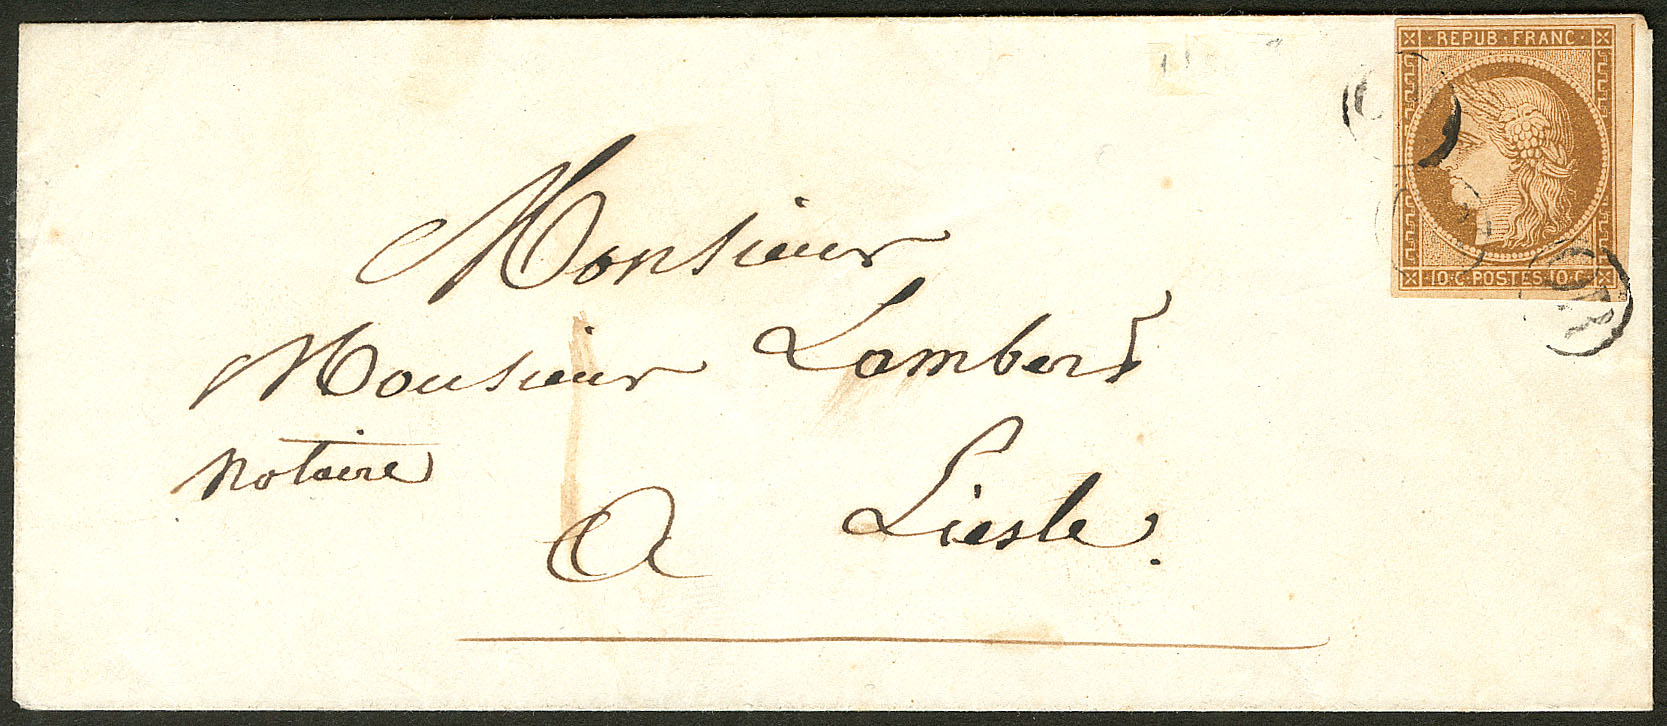 REPUB · FRANC ·
10 · C · POSTES · 10 · C
OR
Monsieur
Monsieur Lambert
notaire
A Liesle.